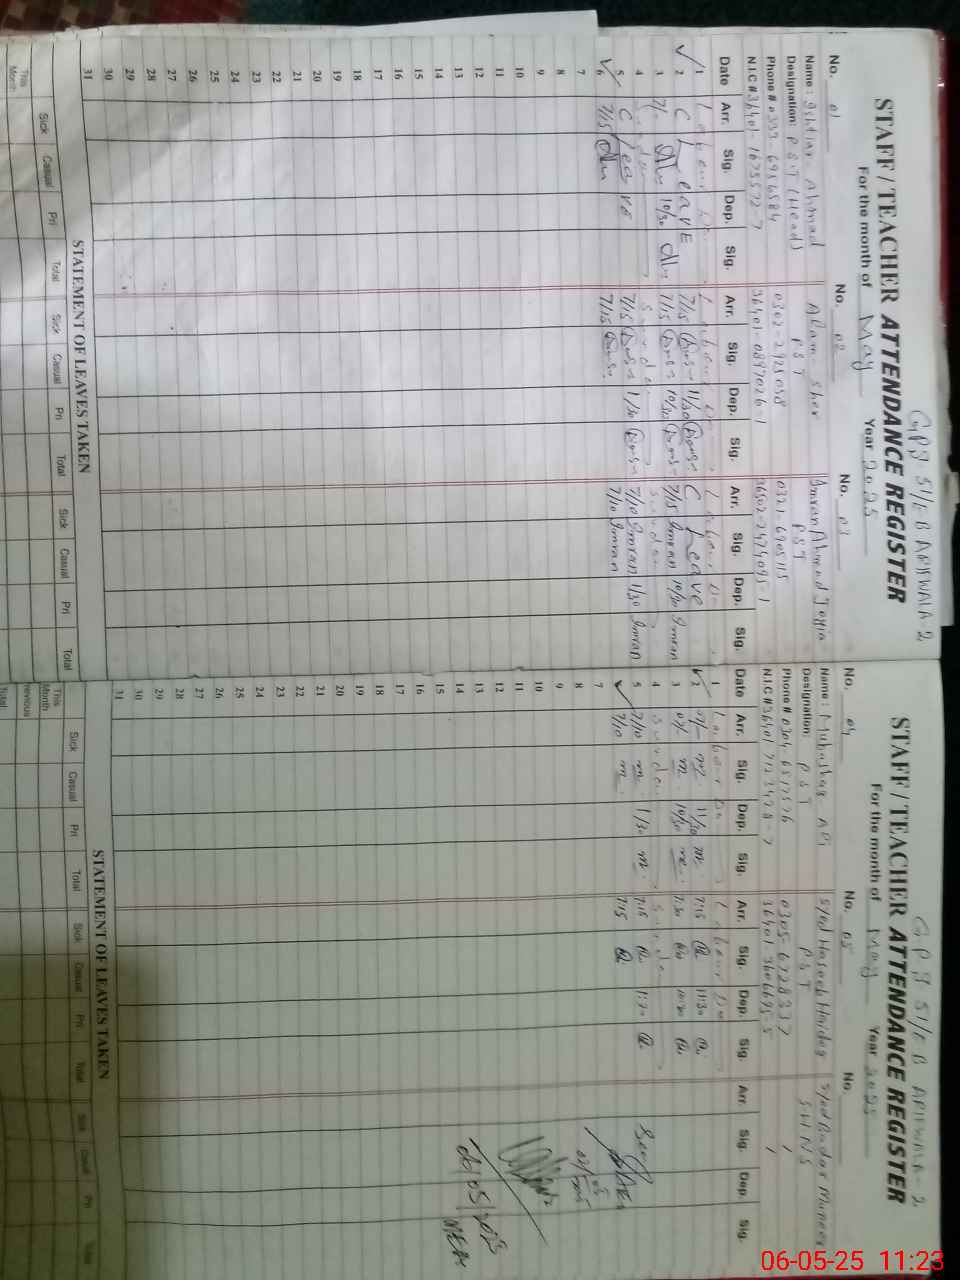 GPS 51/EB ARIFWALA-2
STAFF / TEACHER ATTENDANCE REGISTER
For the month of May Year 2025
No. 01 No. 02 No. 03
Name : Ishtiaq Ahmad Alam Sher Imran Ahmad Joyia
Designation: P.S.T (Head) PST PST
Phone # 0333-6956584 0302-2925058 0321-6905115
N.I.C # 36401-1675572-7 36401-0897026-1 36502-2474093-1
Date Arr. Sig. Dep. Sig. Arr. Sig. Dep. Sig. Arr. Sig. Dep. Sig.
1 Labour Day Labour Day Labour Day
2 C Leave 7/15 11/30 C Leave
3 7/- 10/30 7/15 10/30 7/15 Imran 10/30 Imran
4 Sunday Sunday Sunday
5 C Leave 7/15 1/30 7/10 Imran 1/30 Imran
6 7/15 7/15 7/10 Imran
7
8
9
10
11
12
13
14
15
16
17
18
19
20
21
22
23
24
25
26
27
28
29
30
31
STATEMENT OF LEAVES TAKEN
Sick Casual Pri Total Sick Casual Pri Total Sick Casual Pri Total
This Month
GPS 51/EB ARIFWALA-2
STAFF / TEACHER ATTENDANCE REGISTER
For the month of May Year 2025
No. 04 No. 05 No.
Name : Mubashar Ali Syed Haseeb Haider Syed Badar Muneer
Designation: PST PST
Phone # 0304-6517576 0305-6728337
N.I.C # 36401-7123428-7 36401-3606695-5
Date Arr. Sig. Dep. Sig. Arr. Sig. Dep. Sig. Arr. Sig. Dep. Sig.
1 Labour Day Labour Day
2 07/- 11/30 7:15 11:30
3 07/- 10/30 7:30 10:30
4 Sunday Sunday
5 7/10 1/30 7:15 1:30
7/10 7:15
7
8
9
10
11
12
13
14
15
16
17
18
19
20
21
22
23
24
25
26
27
28
29
30
31
STATEMENT OF LEAVES TAKEN
Sick Casual Pri Total Sick Casual Pri Total Sick Casual Pri Total
This Month
Total
06-05-25 11:23